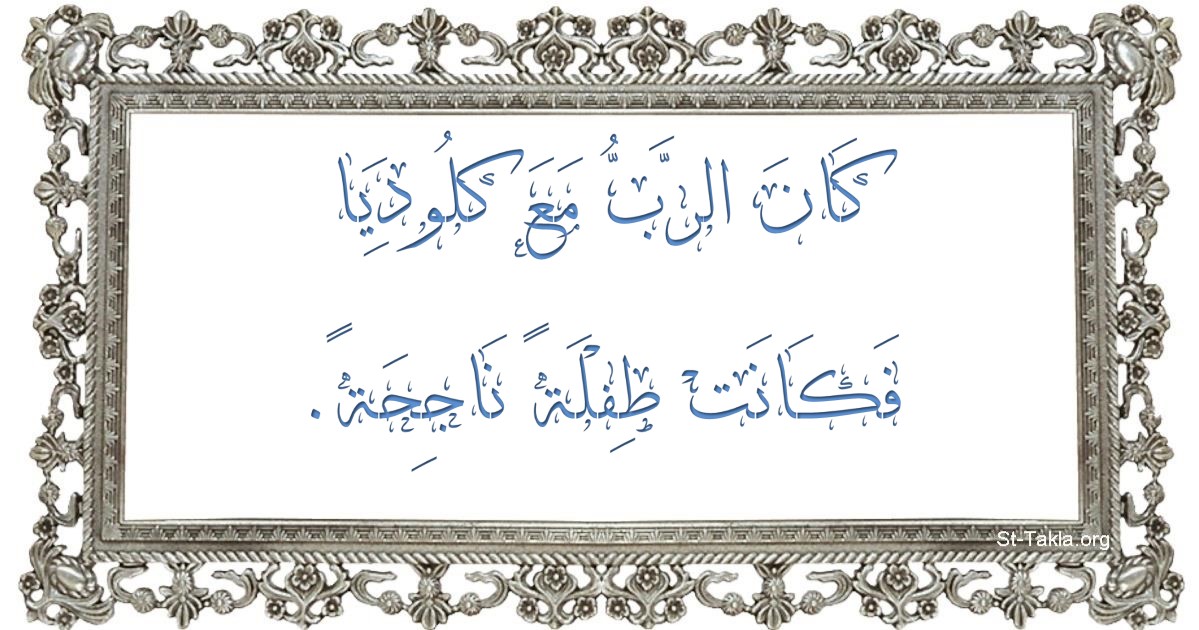 كَانَ الرَّبُّ مَعَ كلُودِيَا
فَكَانَتْ طِفْلَةً نَاجِحَةً.
St-Takla.org